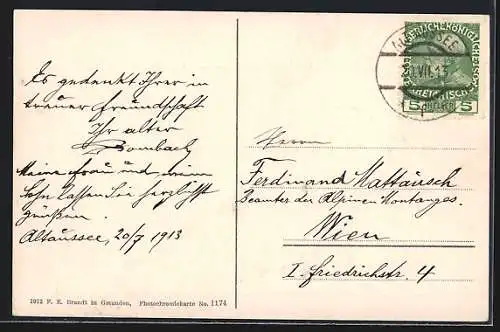 Es gedenkt Ihrer in
treuer Freundschaft
Ihr alter
Bombach
Meine Frau und mein
Sohn lassen Sie herzlichst
grüßen.
Altaussee, 20/7 1913
1912 F. E. Brandt in Gmunden, Photochromiekarte No. 1174
20.VII.13
5 5
Herrn
Ferdinand Mattausch
Beamter der Alpinen Montanges.
Wien
I. Friedrichstr. 4